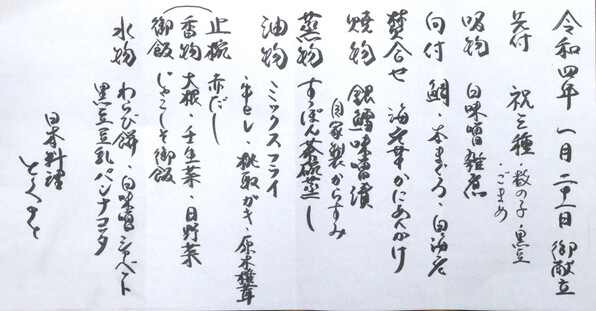 令和四年 一月 二十一日 御献立
先付 祝三種・数の子・黒豆
・ごまめ
吸物 白味噌雑煮
向付 鯛・本まぐろ・白海老
焚合せ 海老芋かにあんかけ
焼物 銀鱈味噌漬
自家製からすみ
蒸物 すっぽん茶碗蒸し
油物 ミックスフライ
・牛ヒレ・桃取かき・原木椎茸
止椀 赤だし
香物 大根・壬生菜・日野菜
御飯 じゃこしそ御飯
水物 わらび餅・白味噌シャーベット
黒豆豆乳パンナコッタ
日本料理